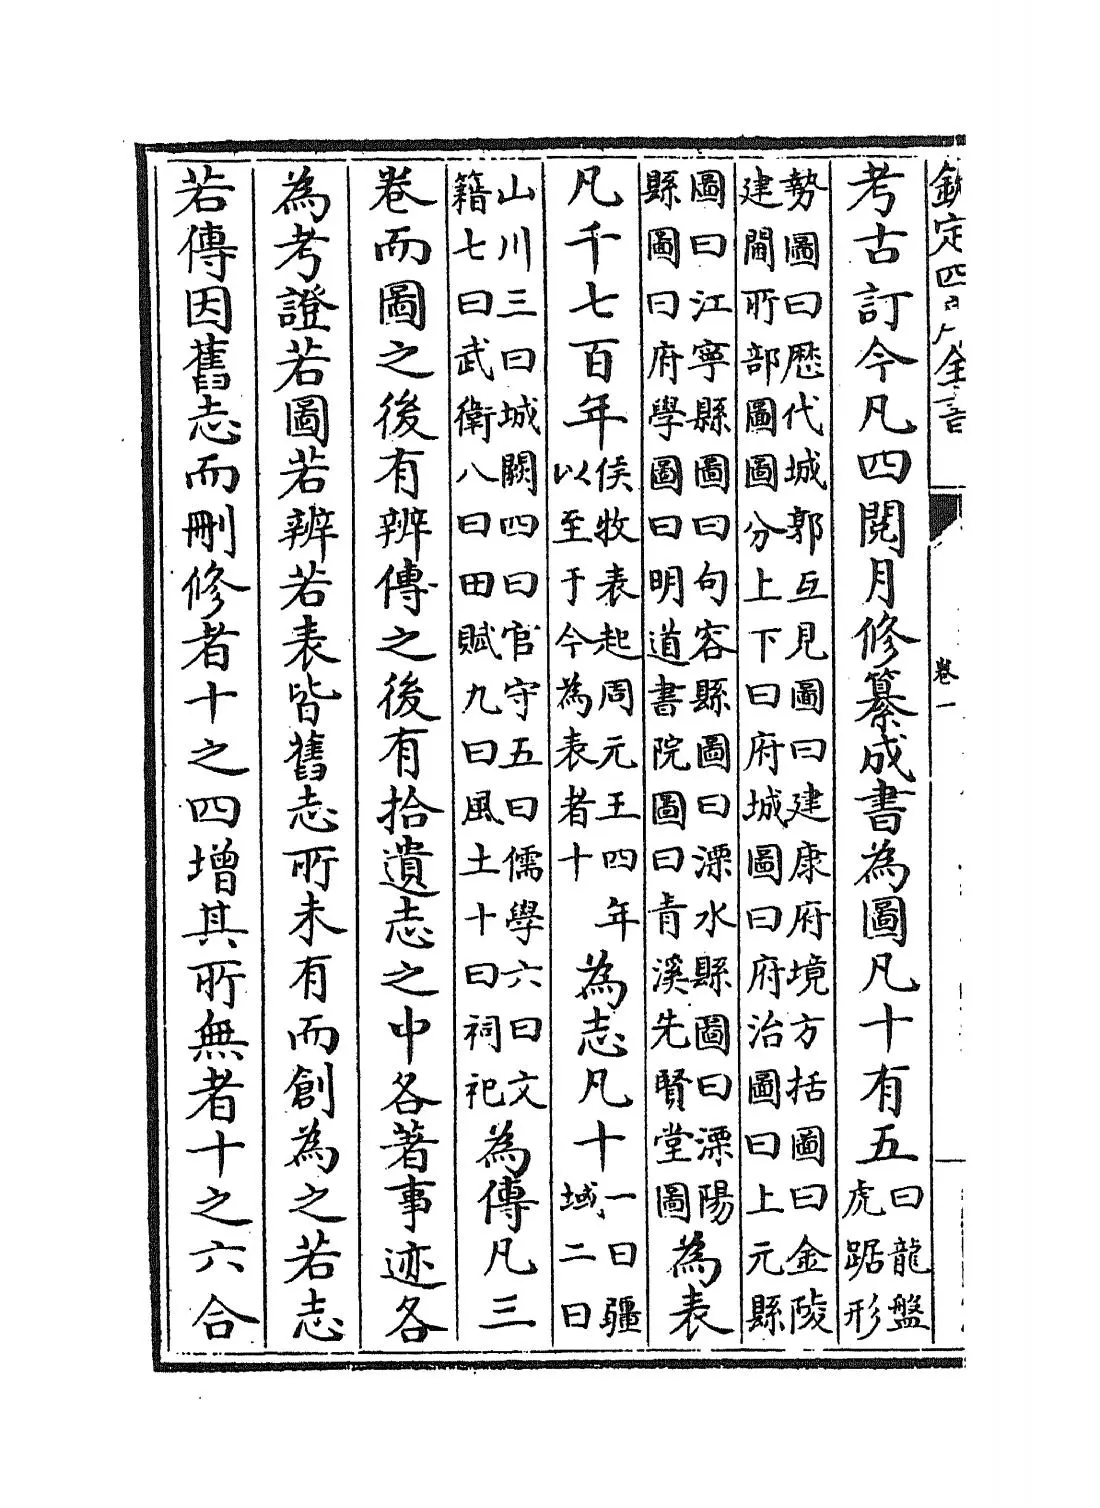 欽定四庫全書
卷一
考古訂今凡四閲月修纂成書為圖凡十有五
曰龍盤
虎踞形
勢圖曰歴代城郭互見圖曰建康府境方括圖曰金陵
建閫所部圖圖分上下曰府城圖曰府治圖曰上元縣
圖曰江寧縣圖曰句容縣圖曰溧水縣圖曰溧陽
縣圖曰府學圖曰明道書院圖曰青溪先賢堂圖
為表
凡千七百年
侯牧表起周元王四年
以至于今為表者十
為志凡十
一曰疆
域二曰
山川三曰城闕四曰官守五曰儒學六曰文
籍七曰武衛八曰田賦九曰風土十曰祠祀
為傳凡三
卷而圖之後有辨傳之後有拾遺志之中各著事迹各
為考證若圖若辨若表皆舊志所未有而創為之若志
若傳因舊志而刪修者十之四增其所無者十之六合